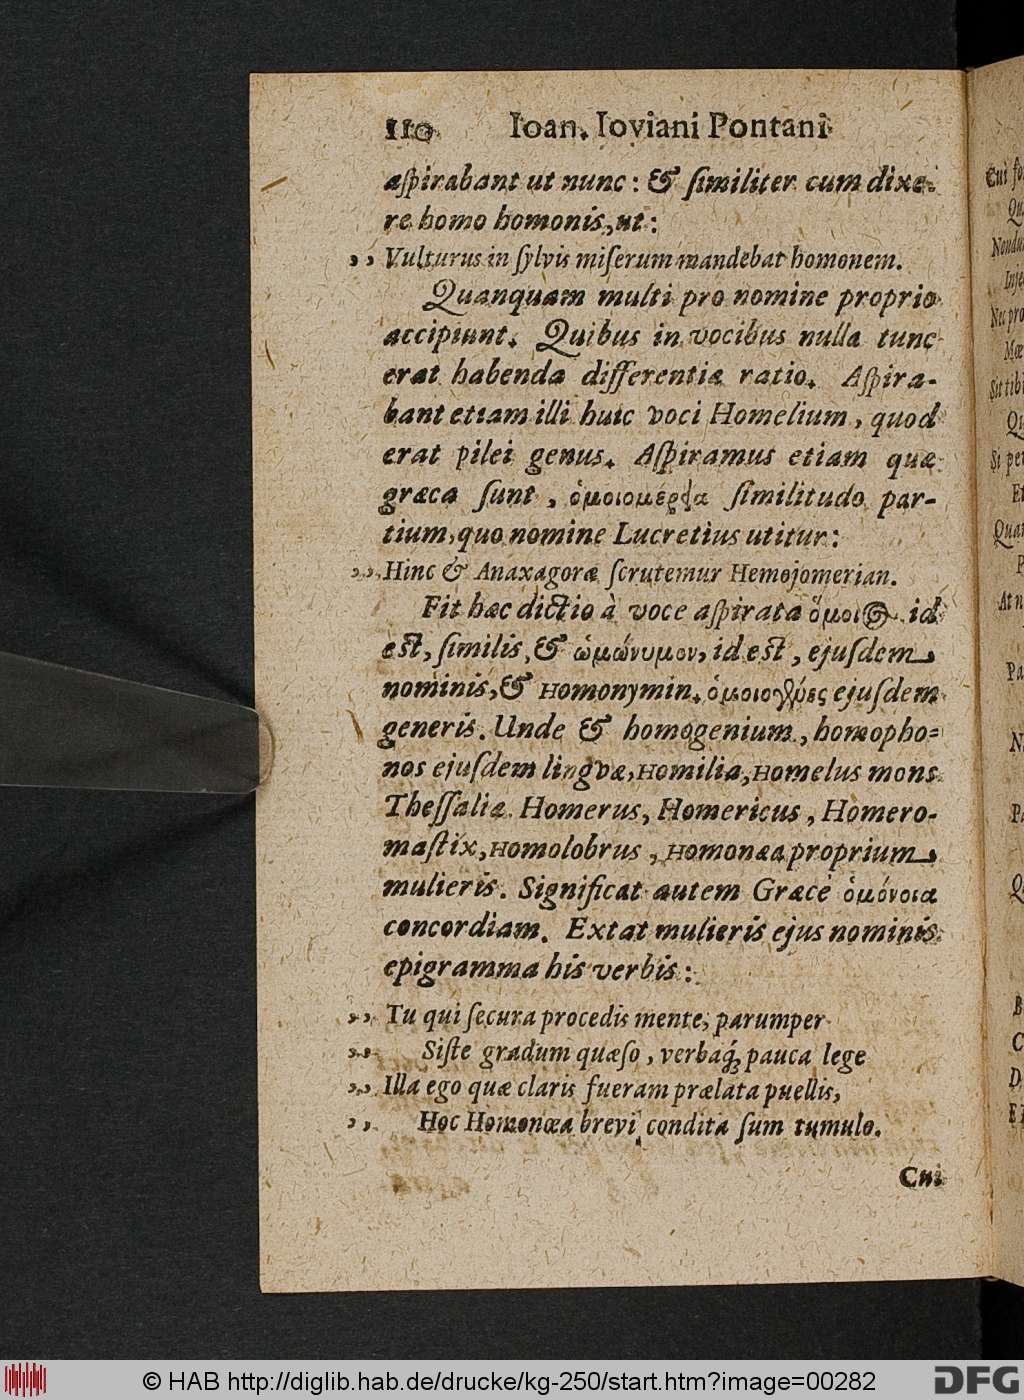 110 Ioan. Ioviani Pontani
aſpirabant ut nunc: & ſimiliter cum dixe-
re homo homonis, ut:
,, Vulturus in ſylvis miſerum mandebat homonem.
Quanquam multi pro nomine proprio
accipiunt. Quibus in vocibus nulla tunc
erat habenda differentiæ ratio. Aſpira-
bant etiam illi huic voci Homelium, quod
erat pilei genus. Aſpiramus etiam quæ
græca ſunt, ὁμοιομέρεια ſimilitudo par-
tium, quo nomine Lucretius utitur:
,, Hinc & Anaxagoræ ſcrutemur Hemojomerian.
Fit hæc dictio à voce aſpirata ὅμοιος id
eſt, ſimilis, & ὡμώνυμον, id eſt, ejuſdem
nominis, & Homonymin. ejuſdem
generis. Unde & homogenium, homopho-
nos ejuſdem lingvæ, Homilia, Homelus mons
Theſſaliæ Homerus, Homericus, Homero-
maſtix, Homolobrus, Homonæa proprium
mulieris. Significat autem Græcè ὁμόνοια
concordiam. Extat mulieris ejus nominis
epigramma his verbis:
,, Tu qui ſecura procedis mente, parumper
,, Siſte gradum quæſo, verbaq́; pauca lege
,, Illa ego quæ claris fueram prælata puellis,
,, Hoc Homonœa brevi condita ſum tumulo.
Cui
Cui
Nec pro
Sit tibi
Si
Et
At n
Pa
B
C
D
© HAB http://diglib.hab.de/drucke/kg-250/start.htm?image=00282
DFG